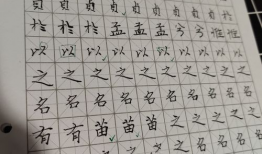 贞 贞 贞 贞 贞 贞 贞
於 於 於 孟 孟 孟 兮 兮 惟 惟
以 以 以 以 以 以 以 以 以
之 之 之 之 之 之 之 之
名 名 名 名 名 名 名 名
有 有 苗 苗 苗 之 之 之
名 名 名 名